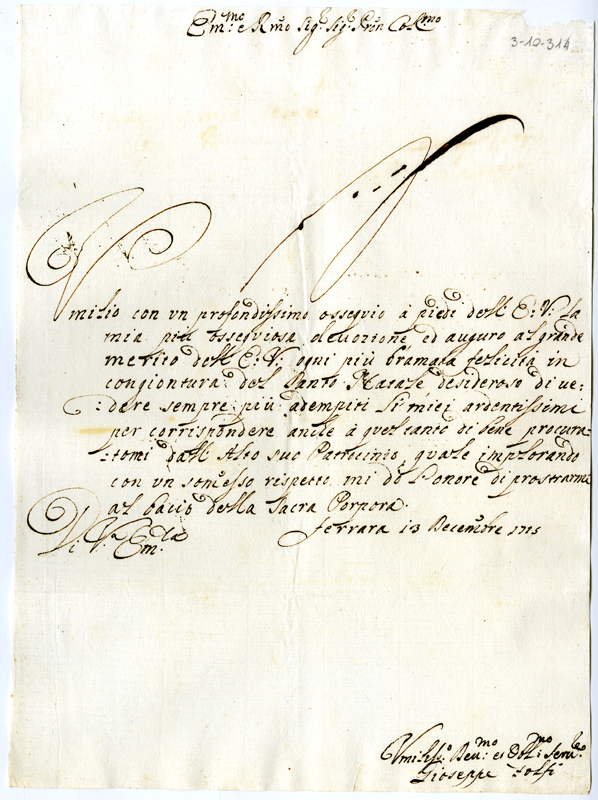 Em:mo e Rmo Sig.r Sig.r Pron Colmo
3-10-314
Vmilio con vn profondissimo ossequio à piedi dell' E: V: la
mia più ossequiosa deuozione, ed auguro al grande
merito dell' E: V: ogni più bramata felicità in
congiontura del Santo Natale desideroso di ue-
:dere sempre più adempiti li miei ardentissimi
per corrispondere anche à quel tanto di bene procura-
:tomi dall' Alto suo Patrocinio, quale implorando
con vn somesso rispetto mi dò l'onore di prostrarmi
al bacio della Sacra Porpora.
Di V.ra Em:za
Ferrara 13 Decembre 1715
Vmiliss:o Deu:mo et Obl:mo Seru:
Gioseppe